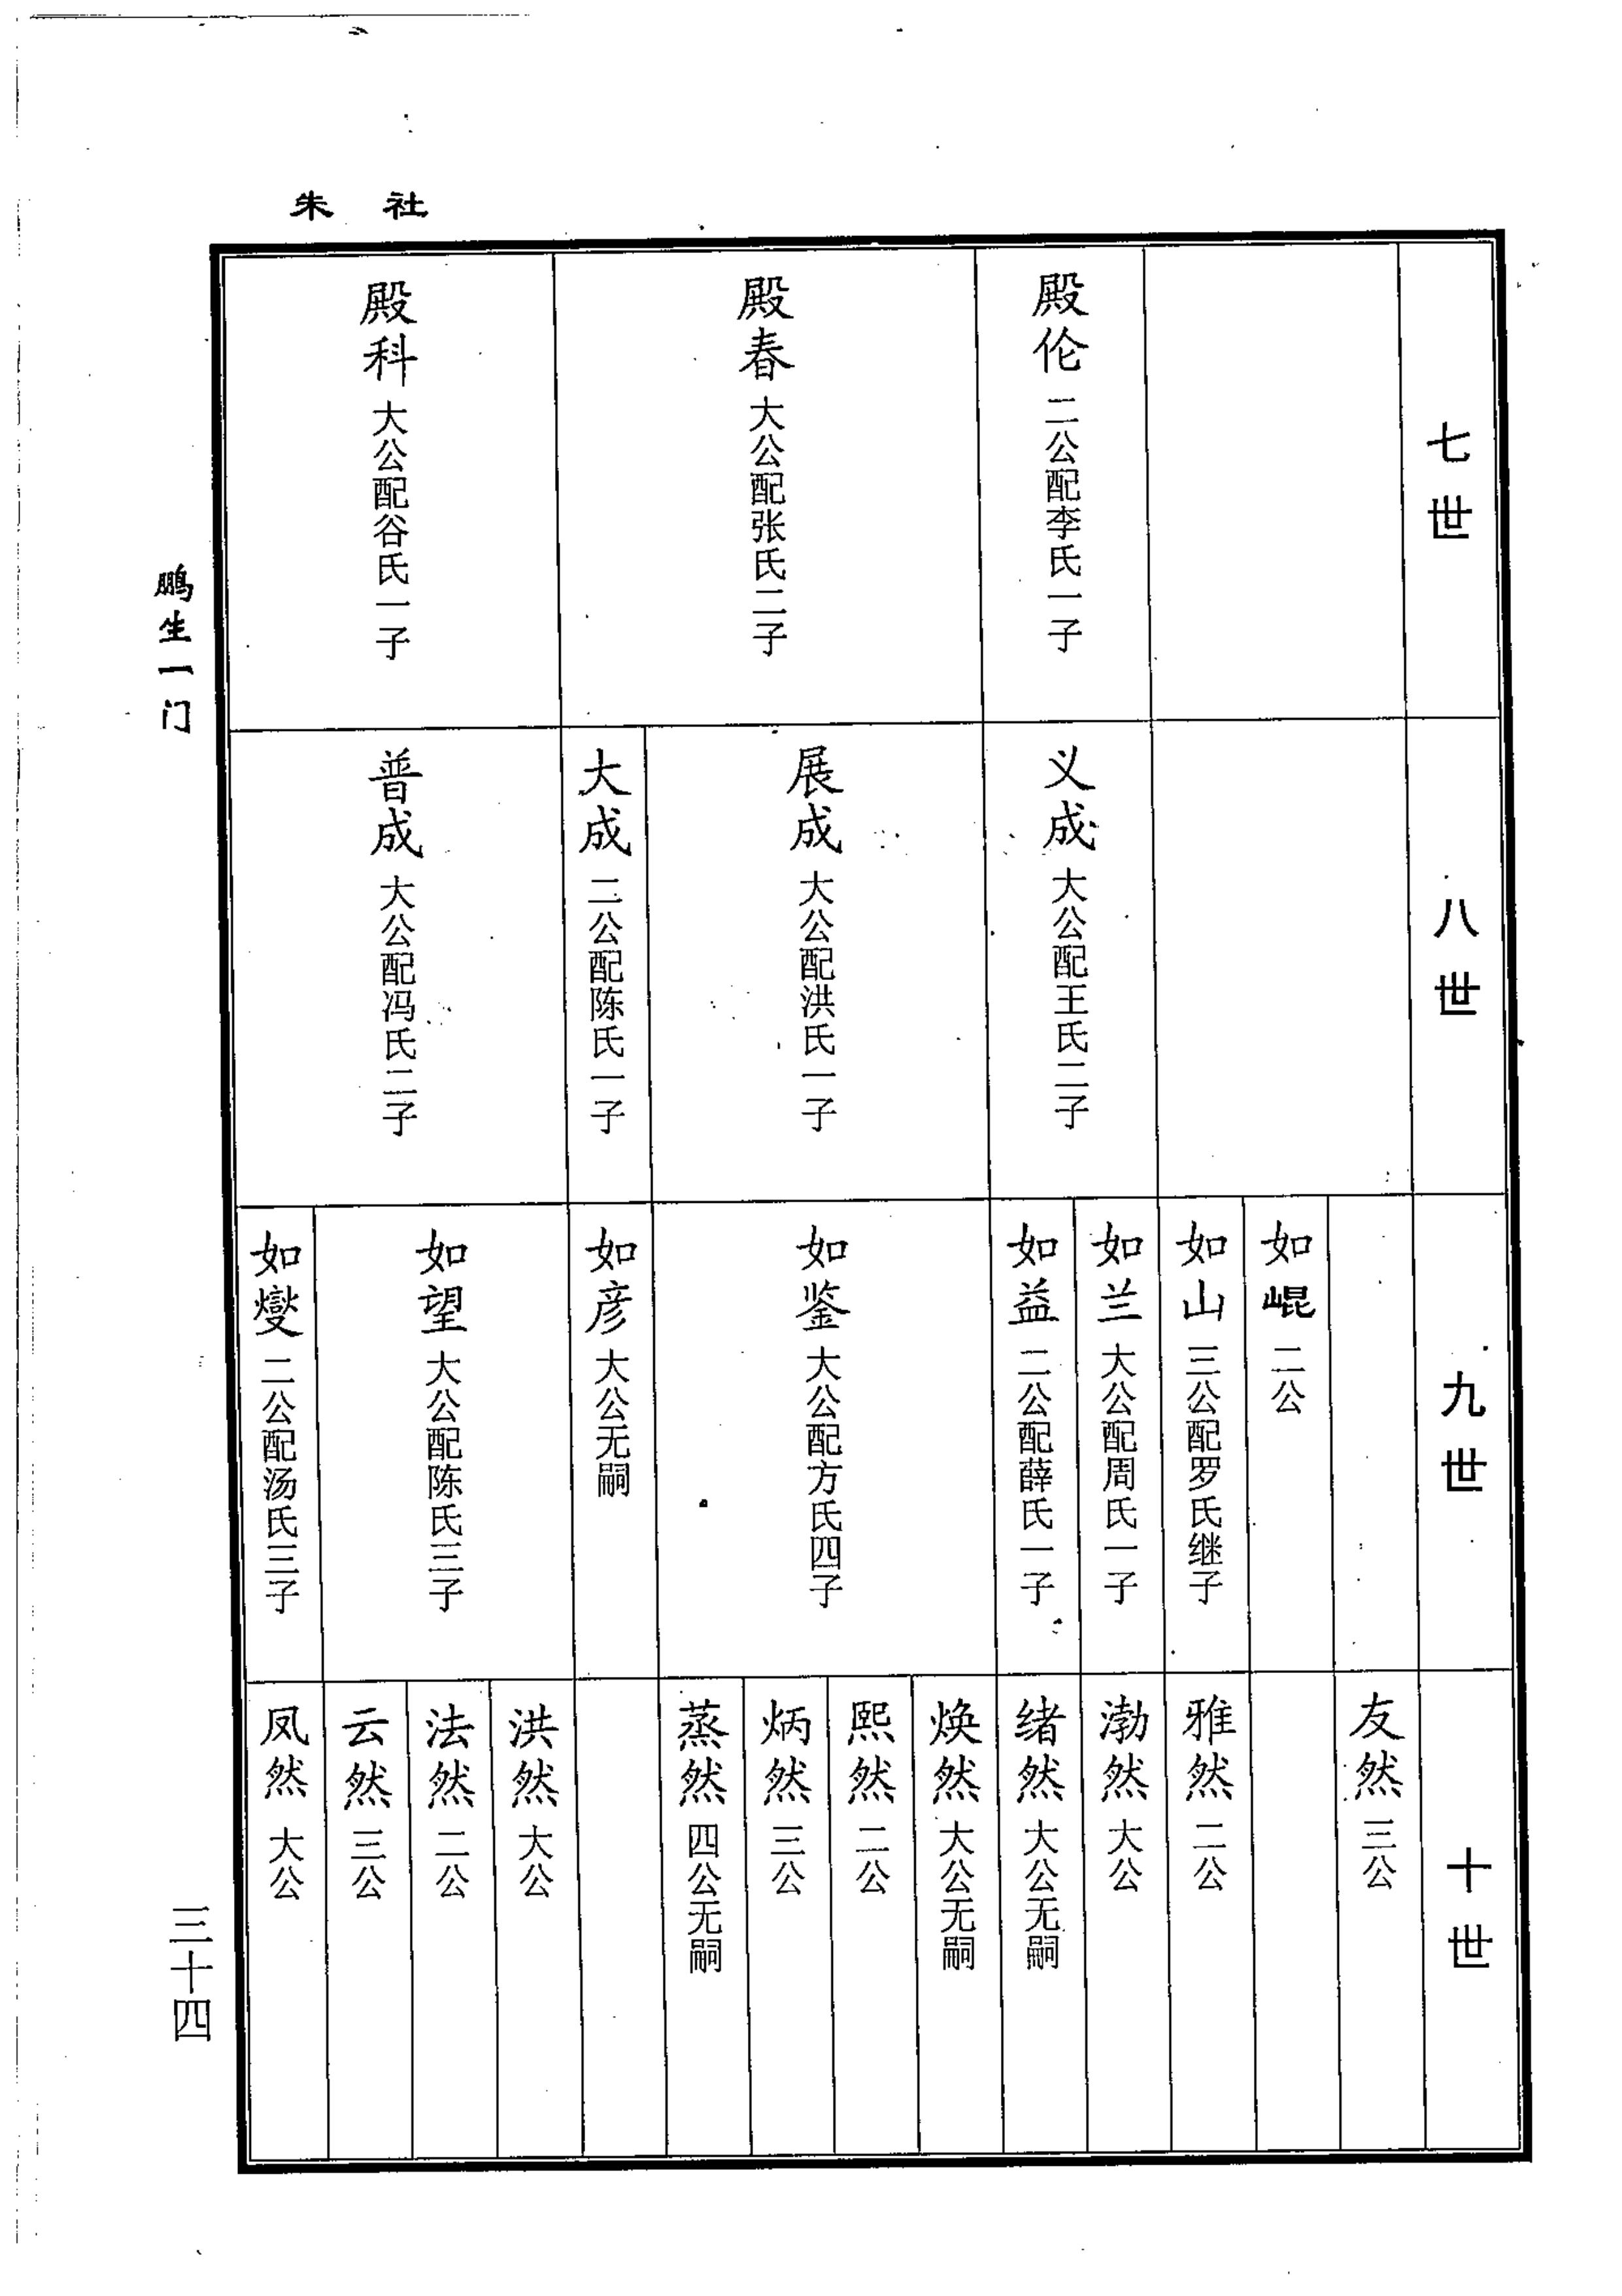 朱 社
七世
殿伦 二公配李氏一子
殿春 大公配张氏二子
殿科 大公配谷氏一子
八世
义成 大公配王氏二子
展成 大公配洪氏一子
大成 二公配陈氏一子
普成 大公配冯氏二子
九世
如崐 二公
如山 三公配罗氏继子
如兰 大公配周氏一子
如益 二公配薛氏一子
如鉴 大公配方氏四子
如彦 大公无嗣
如望 大公配陈氏三子
如燮 二公配汤氏三子
十世
友然 三公
雅然 二公
渤然 大公
绪然 大公无嗣
焕然 大公无嗣
熙然 二公
炳然 三公
蒸然 四公无嗣
洪然 大公
法然 二公
云然 三公
凤然 大公
鹏生一门
三十四